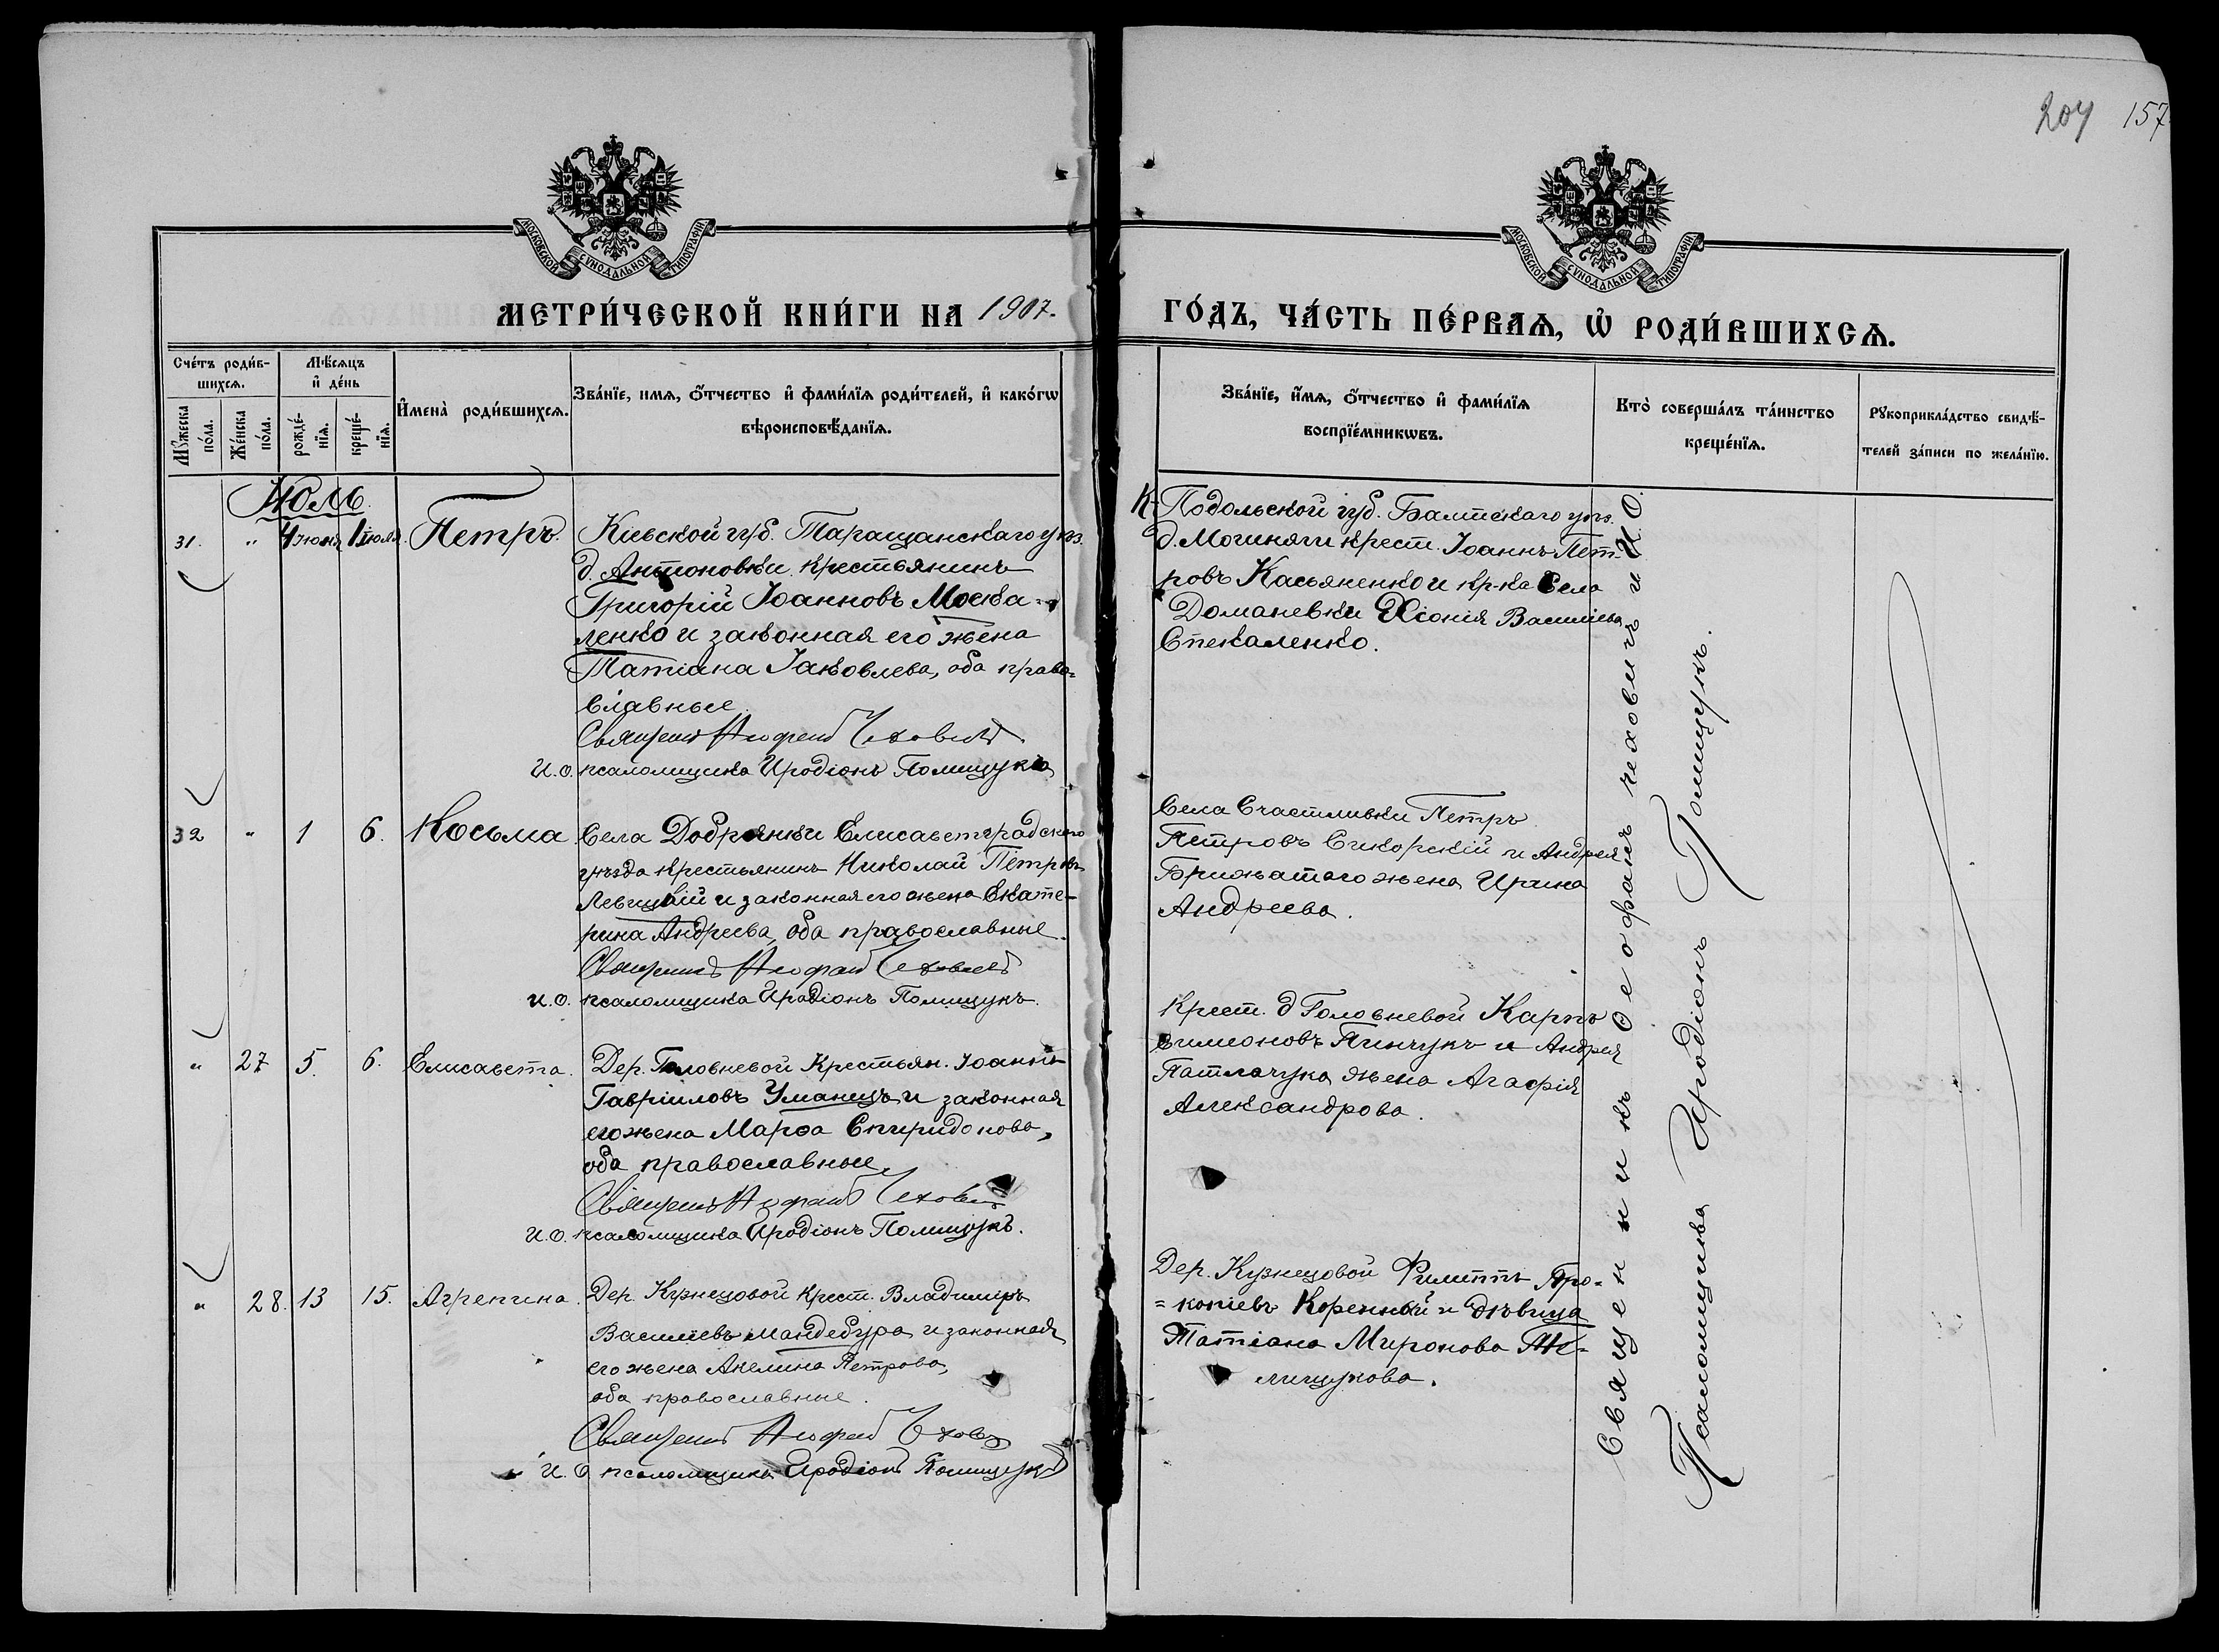 204 157
МОСКОВСКОЙ СѴНОДАЛЬНОЙ ТИПОГРАФІИ
МОСКОВСКОЙ СѴНОДАЛЬНОЙ ТИПОГРАФІИ
МЕТРИ́ЧЕСКОЙ КНИ́ГИ НА 1907.
ГО́ДЪ, ЧА́СТЬ ПЕ́РВАѦ, Ѡ҆ РОДИ́ВШИХСѦ.
Сче́тъ роди́в-
шихсѧ.
Мѣ́сѧцъ
и҆ де́нь
Мꙋ́жеска
по́ла.
Же́нска
по́ла.
рожде́-
нїѧ.
креще́-
нїѧ.
И҆мена̀ роди́вшихсѧ.
Зва́нїе, имѧ, ѻ҆́тчество и҆ фамилїѧ роди́телей, и҆ како́гѡ
вѣроисповѣ́данїѧ.
Зва́нїе, и҆́мѧ, ѻ҆́тчество и҆ фами́лїѧ
воспрїе́мникѡвъ.
Кто̀ соверша́лъ та́инство
креще́нїѧ.
Рꙋкоприкла́дство свидѣ́-
телей за́писи по жела́нїю.
Іюль
31. " 4 іюня 1 іюля. Петръ.
Кіевской губ. Таращанскаго уѣз.
д. Антоновки крестьянинъ
Григорій Іоанновъ Моска-
ленко и законная его жена
Татіана Іаковлева, оба право-
славные
Священникъ Ѳеофанъ Чеховичъ
И. о. псаломщика Иродіонъ Полищукъ
Подольской губ. Балтскаго уѣз.
д. Могиляги крест. Іоаннъ Пет-
ровъ Касьяненко и кр-ка села
Доманевки Хіонія Василіева
Стекаленко.
32 " 1 6. Косьма
Села Добрянки Елисаветградского
уѣзда крестьянинъ Николай Петровъ
Левицкій и законная его жена Екате-
рина Андреева, оба православные.
Священникъ Ѳеофанъ Чеховичъ
и. о. псаломщика Иродіонъ Полищукъ.
Села Счастливки Петръ
Петровъ Сикорскій и Андрея
Брижатаго жена Ирина
Андреева.
" 27 5. 6. Елисавета.
Дер. Головневой Крестьян. Іоаннъ
Гавріиловъ Уманецъ и законная
его жена Марѳа Спиридонова,
оба православные.
Священникъ Ѳеофанъ Чеховичъ
и. о. псаломщика Иродіонъ Полищукъ.
Крест. д Головневой Карпъ
Симоновъ Пинчукъ и Андрея
Патлачука жена Агафія
Александрова.
" 28. 13 15. Агрепина.
Дер. Кузнецовой Крест. Владиміръ
Василіевъ Мандебура и законная
его жена Акелина Петрова,
оба православные.
Священникъ Ѳеофанъ Чеховичъ
И. О псаломщика Иродіонъ Полищукъ
Дер. Кузнецовой Филиппъ Про-
=копіевъ Коренной и дѣвица
Татіана Миронова По-
лищукова.
Священникъ Ѳеофанъ Чеховичъ и И. О.
Псаломщика Иродіонъ Полищукъ.